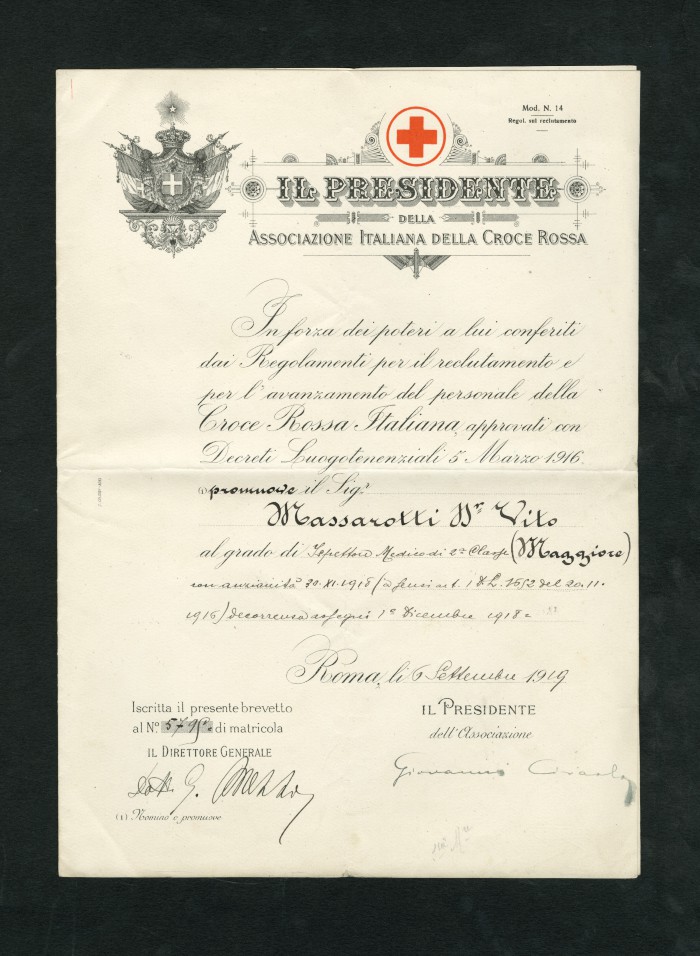 Mod. N. 14
Regol. sul reclutamento
IL PRESIDENTE
DELLA
ASSOCIAZIONE ITALIANA DELLA CROCE ROSSA
In forza dei poteri a lui conferiti
dai Regolamenti per il reclutamento e
per l'avanzamento del personale della
Croce Rossa Italiana, approvati con
Decreti Luogotenenziali 5 Marzo 1916.
(1) promuove il Sig.r
Massarotti Dr Vito
al grado di Ispettore Medico di 2ª Classe (Maggiore)
con anzianità 30.XI.1918 (a sensi art. 1 D.L. 1552 del 20.11.
1916) decorrenza assegni 1º Dicembre 1918=
Roma, li 6 Settembre 1919
Iscritta il presente brevetto
al Nº di matricola
IL DIRETTORE GENERALE
IL PRESIDENTE
dell'Associazione
Dott. G.
Giovanni Ciraolo
(1) Nomina e promuove